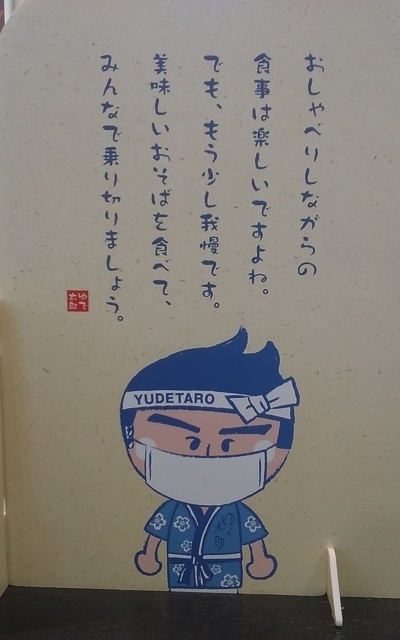 おしゃべりしながらの
食事は楽しいですよね。
でも、もう少し我慢です。
美味しいおそばを食べて、
みんなで乗り切りましょう。
ゆで
太郎
YUDETARO
ゆで太郎